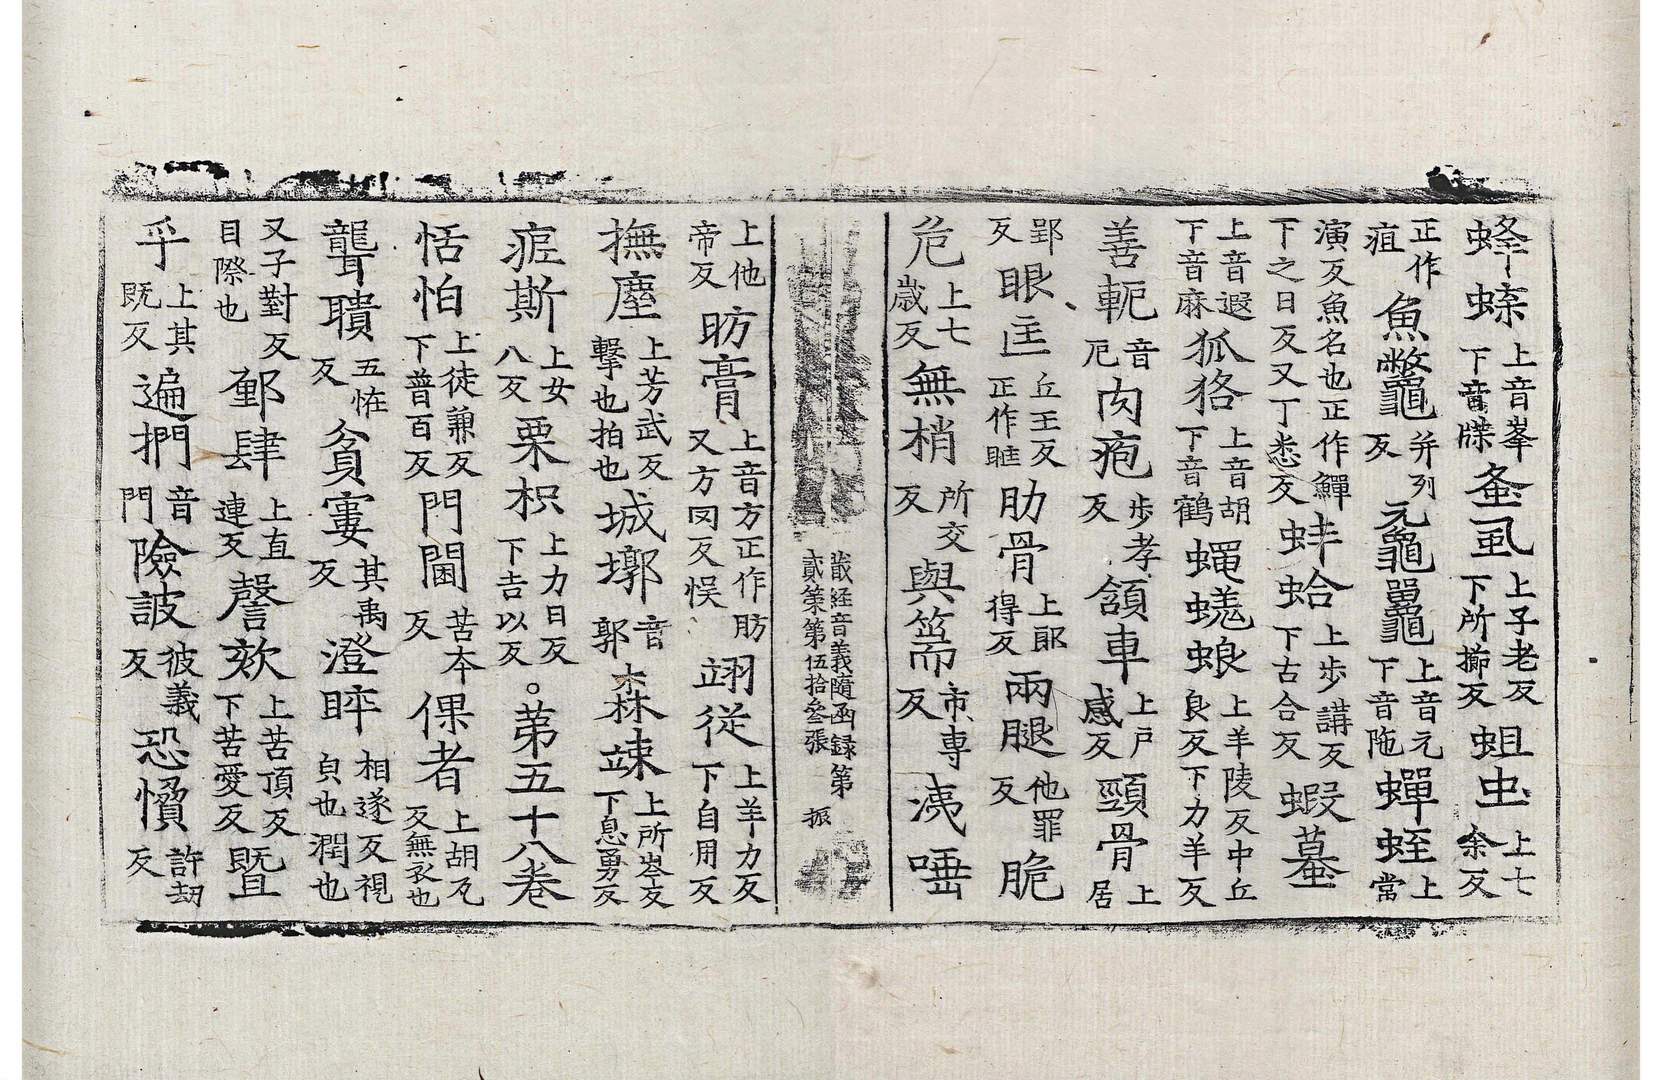 蜂䗁上音峯下音牒蚤虱上子老反下所擳反蛆虫上七余反
正作疽魚鼈并列反黿鼉上音元下音陁蟬蛭上常
演反魚名也正作鱓下之日反又丁悉反蚌蛤上步講反下古合反蝦蟇
上音遐下音麻狐狢上音胡下音鶴蝿蜣蜋上羊陵反中丘良反下力羊反
善軛音厄肉疱步孝反頷車上戶感反頸骨上居
郢反眼匡丘王反正作眶肋骨上郎得反兩腿他罪反脆
危上七歲反無梢所交反與篅市專反洟唾
藏經音義隨函録第貳策第伍拾叄張 振
上他帝反昉膏上音方正作肪又方罔反悮翊從上羊力反下自用反
撫塵上芳武反擊也拍也城墎音郭森竦上所岑反下息勇反
痆斯上女八反栗枳上力日反下吉以反。苐五十八卷
恬怕上徒兼反下普百反門閫苦本反倮者上胡瓦反無衣也
聾聵五恠反貧寠其禹反澄睟相遂反視皃也潤也
又子對反目際也郵肆上直連反謦欬上苦頂反下苦愛反暨
乎上其既反遍捫音門險詖彼義反恐愶許劫反